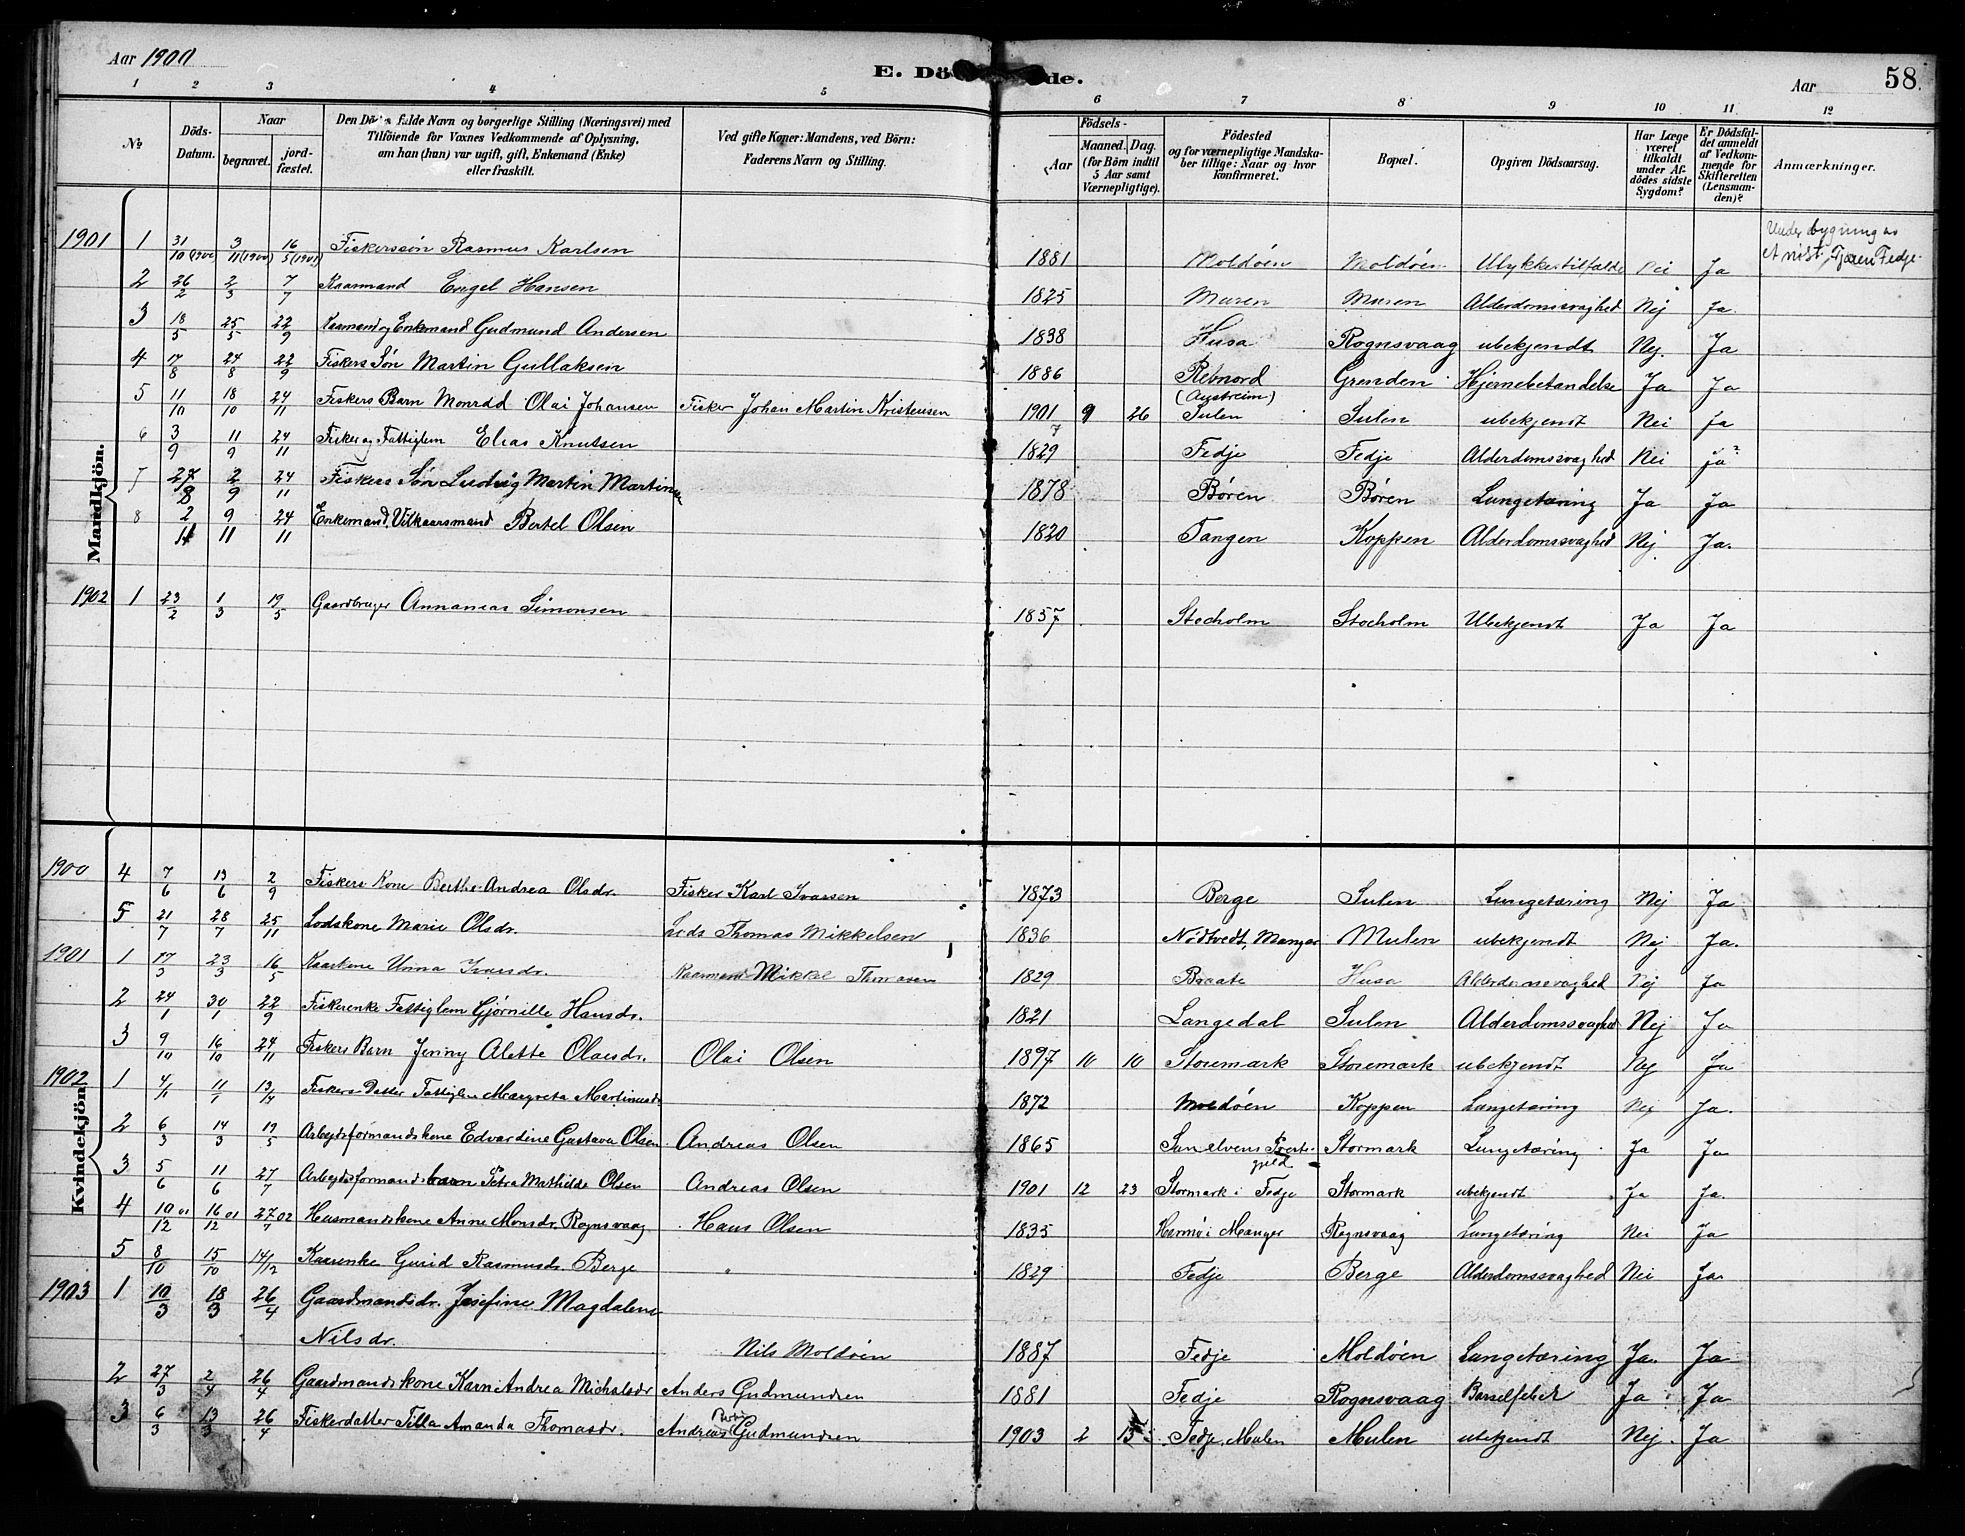 Aar 1900
E. Dö de.
Aar
58.
1 2 3 4 5 6 7 8 9 10 11 12
№
Döds-Datum.
Naar
begravet.
jord-fæstet.
Den Dödes fulde Navn og borgerlige Stilling (Næringsvei) med
Tilföiende for Voxnes Vedkommende af Oplysning,
om han (hun) var ugift, gift, Enkemand (Enke)
eller fraskilt.
Ved gifte Koner: Mandens, ved Börn:
Faderens Navn og Stilling.
Födsels-
Aar
Maaned. Dag.
(for Börn indtil
5 Aar samt
Værnepligtige).
Födested
og for værnepligtige Mandska-
ber tillige: Naar og hvor
konfirmeret.
Bopæl.
Opgiven Dödsaarsag.
Har Læge
været
tilkaldt
under Af-
dödes sidste
Sygdom?
Er Dödsfal-
det anmeldt
af Vedkom-
mende for
Skifteretten
(Lensman-
den)?
Anmærkninger.
Mandkjön.
1901 1 31/10 (1900) 3/11 (1900) 16/5 (1901) Fiskerssøn Rasmus Karlsen 1881 Moldøen Moldøen Ulykkestilfælde Nei Ja Under bygning av et nøst, Fjæren Fedje
2 26/2 2/3 7/7 Kaarmand Engel Hansen 1825 Muren Muren Alderdomssvaghed Nej Ja.
3 18/5 25/5 22/9 Kaarmand og Enkemand Gudmund Andersen 1838 Husa Rognsvaag ubekjendt Nej. Ja
4 17/8 24/8 22/9 Fiskers Søn Martin Gullaksen 1886 Rebnord (Austreim) Grenden Hjernebetændelse Ja Ja
5 11/10 18/10 24/11 Fiskers Barn Monrad Olai Johansen Fisker Johan Martin Kristensen 1901 9 26 Sulen Sulen ubekjendt Nei Ja
6 3/9 11/9 24/11 Fisker og Fattiglem Elias Knutsen 1829 Fedje Fedje Alderdomssvaghed Nei Ja?
7 27/8 2/9 24/11 Fiskers Søn Ludvig Martin Martinsen 1878 Børen Børen Lungetæring Ja Ja
8 2/11 9/11 24/11 Enkemand, Vilkaarsmand Bertel Olsen 1820 Tangen Koppen Alderdomssvaghed Nej Ja.
1902 1 23/2 1/3 19/5 Gaardbruger Annanias Simonsen 1857 Stocholm Stocholm Ubekjendt Ja Ja
Kvindekjön.
1900 4 7/6 13/6 2/9 Fiskers Kone Berthe Andrea Olsdr. Fisker Karl Ivarsen 1873 Berge Sulen Lungetæring Nej Ja
5 21/7 28/7 25/11 Lodskone Marie Olsdr. Lods Thomas Mikkelsen 1836 Nödtvedt, Manger Mulen ubekjendt Nej Ja.
1901 1 17/3 23/3 16/5 Kaarkone Unna Ivarsdr. Kaarmand Mikkel Thomasen 1829 Braate Husa Alderdomsvaghed Nej Ja
2 24/1 30/1 22/9 Fiskerenke Fattiglem Gjørnille Hansdr. 1821 Langedal Sulen Alderdomssvaghed Nej Ja
3 9/10 16/10 24/11 Fiskers Barn Jenny Alette Olaisdr. Olai Olsen 1897 10 10 Storemark Storemark ubekjendt Nej Ja
1902 1 4/1 11/1 13/4 Fiskers Datter Fattiglem Margreta Martinusdr 1872 Moldøen Koppen Lungetæring Nej Ja.
2 6/3 14/3 19/5 Arbejdsformandskone Edvardine Gustava Olsen Andreas Olsen 1865 Sunelvens Præstegjeld Stormark Lungetæring Ja Ja
3 5/6 11/6 27/7 Arbejdsformandsbarn Petra Mathilde Olsen Andreas Olsen 1901 12 23 Stormark i Fedje Stormark ubekjendt Ja Ja.
4 10/12 01 16/12 01 27/4 02 Husmandskone Anne Monsdr. Rognsvaag Hans Olsen 1835 Hermø i Manger Rognsvaag Lungetæring Nei Ja
5 8/10 15/10 14/12 Kaarenke Gurid Rasmusdr. Berge " 1829 Fedje Berge Alderdomssvaghed Nei Ja.
1903 1 10/3 18/3 26/4 Gaardmandsdr. Josefine Magdalene
Nilsdr. Nils Moldøen 1887 Fedje Moldøen Lungetæring Ja. Ja
2 27/3 2/4 26/4 Gaardmandskone Karn Andrea Michalsdr Anders Gudmundsen 1881 Fedje Rognsvaag Barselfeber Ja Ja
3 6/3 13/3 26/4 Fiskerdatter Tilla Amanda Thomasdr. Andreas Gudmundsen 1903 2 15 Fedje, Mulen Mulen ubekjendt Nej. Ja